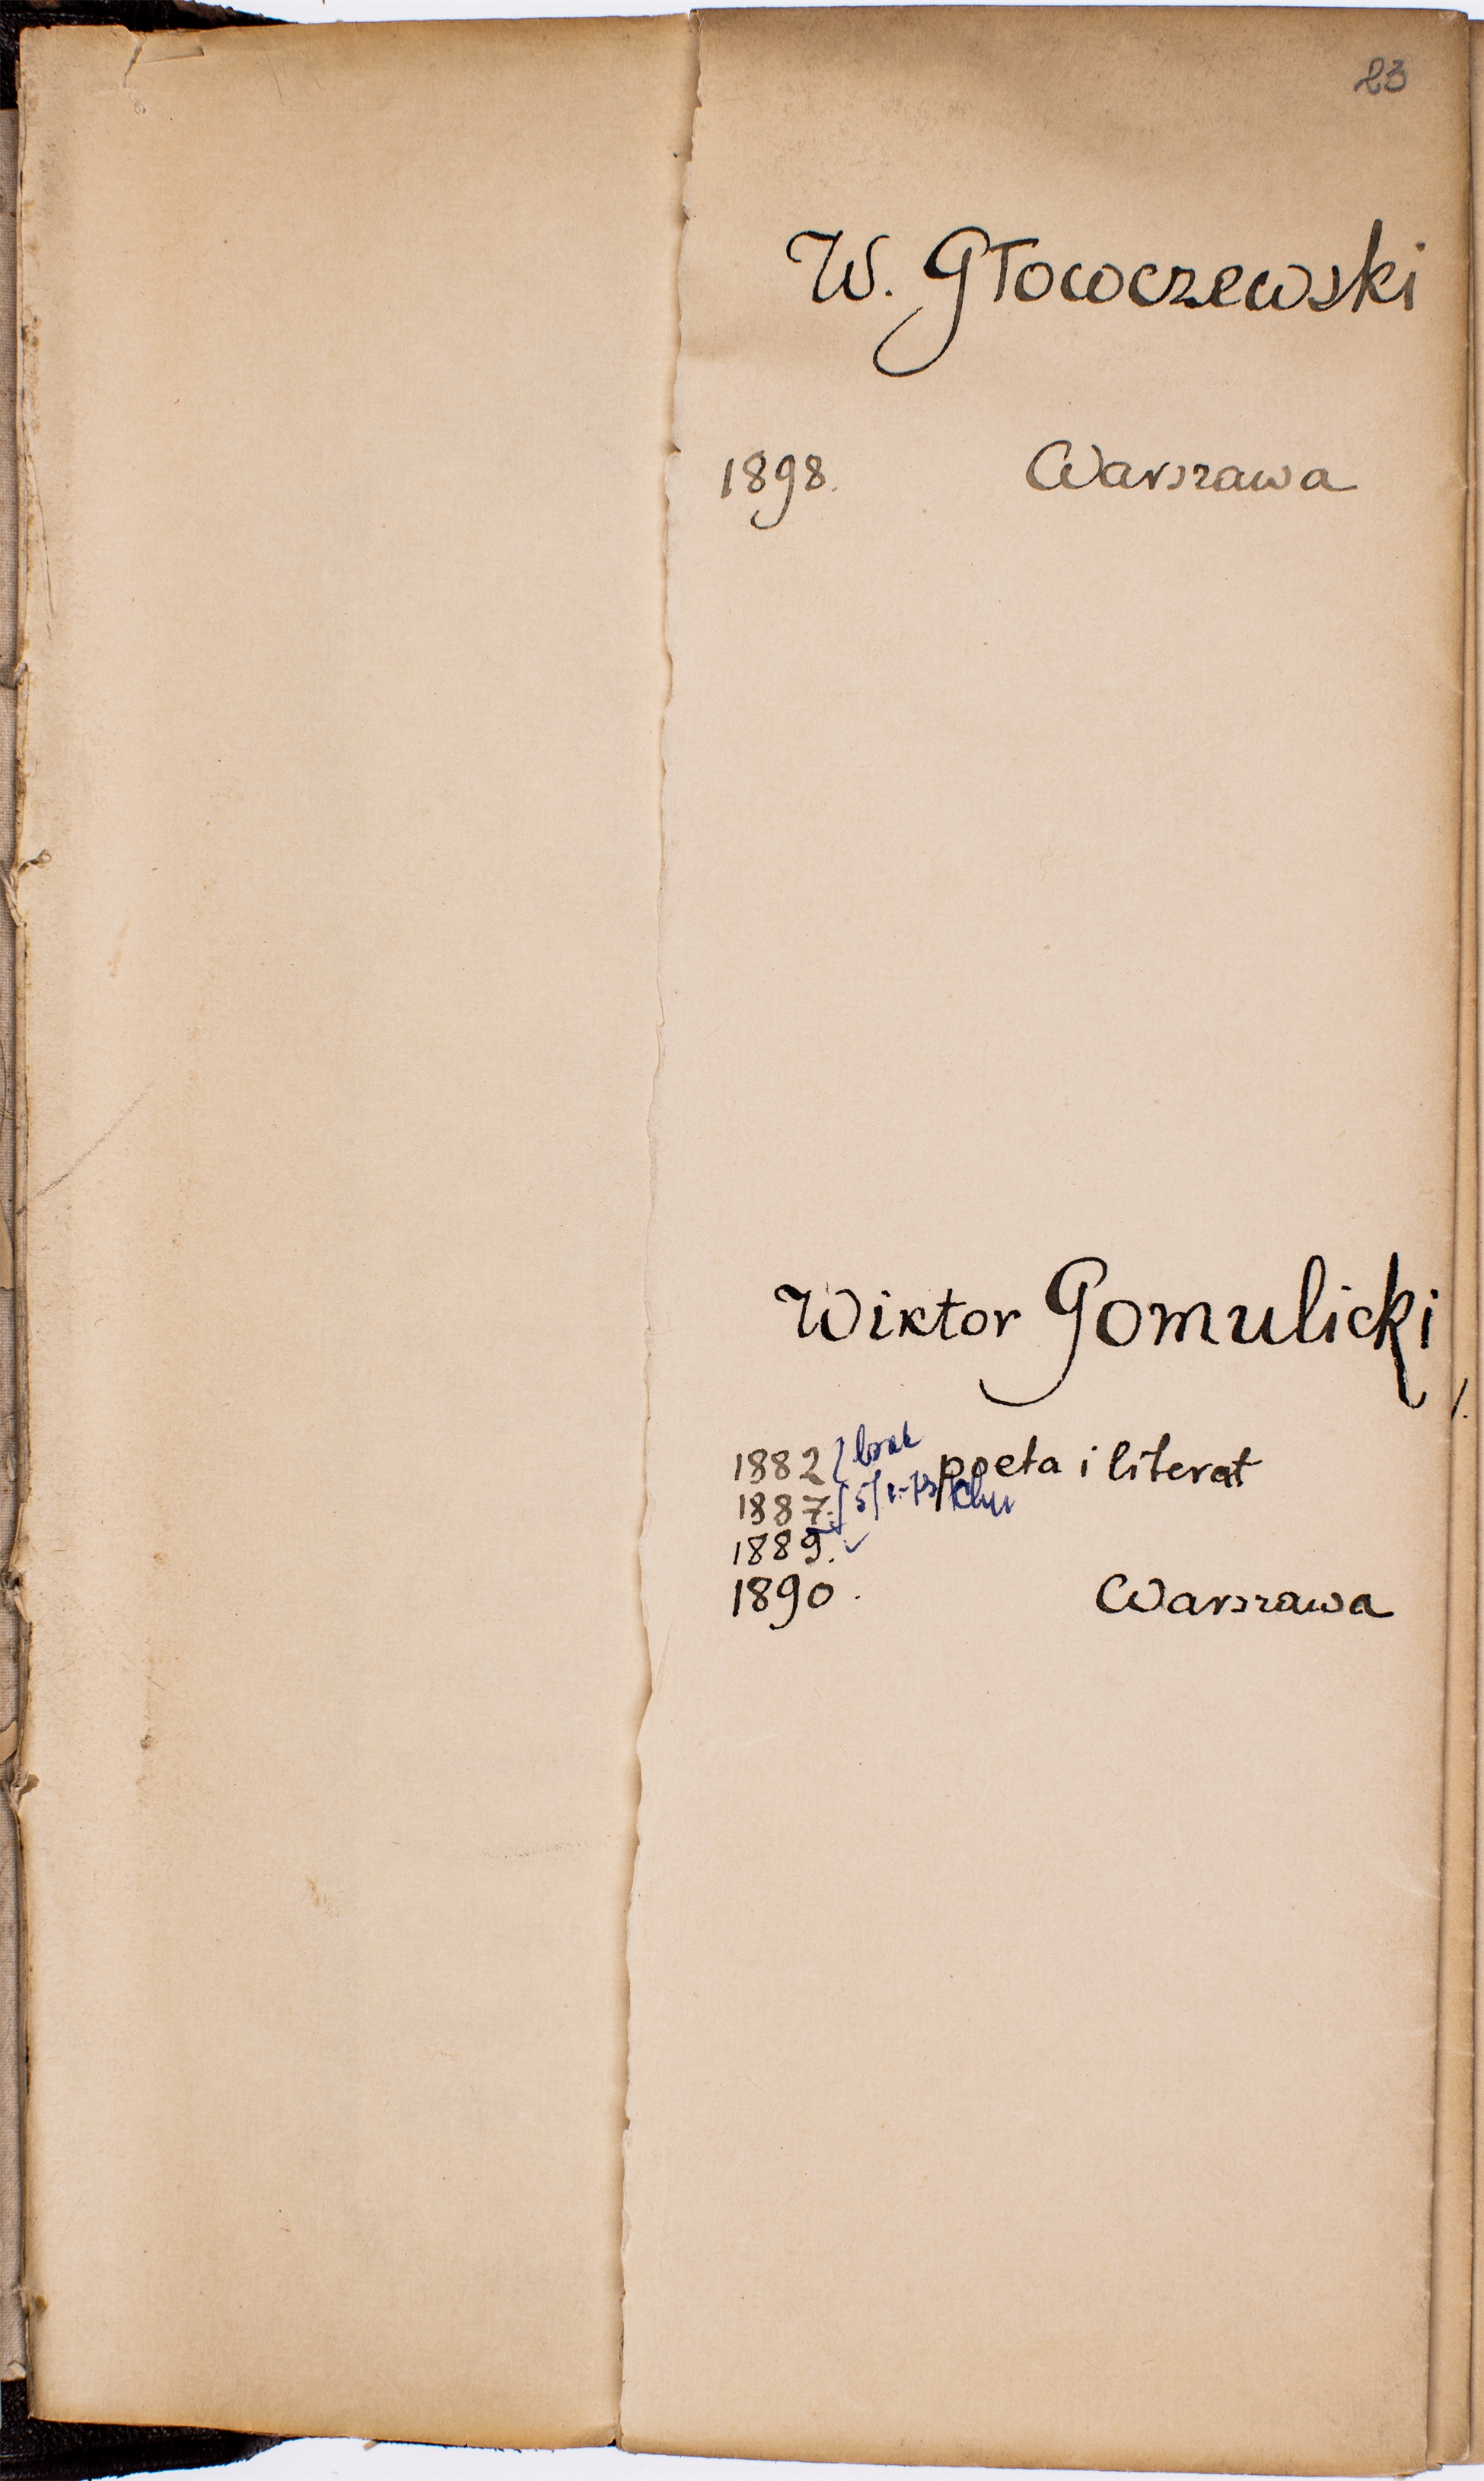 23
W. Głowczewski
1898. Warszawa
Wiktor Gomulicki
1882 } brak poeta i literat
1887.
1889. ✓
1890. Warszawa